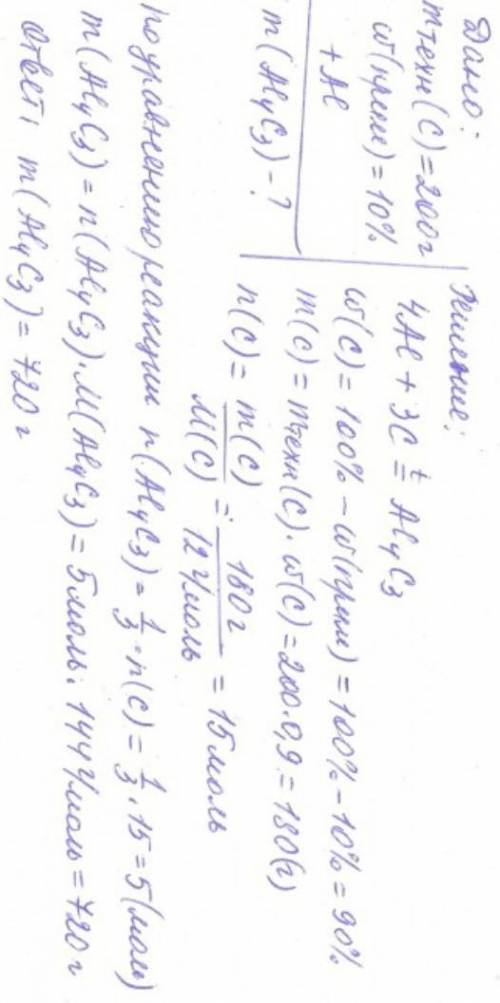 Дано:
mтехн(C)=200г
w(прим)=10%
+Al
m(Al₄C₃)-?
Решение:
4Al + 3C =ᵗ Al₄C₃
w(C) = 100% - w(прим) = 100% - 10% = 90%
m(C) = mтехн(C)·w(C) = 200·0,9 = 180(г)
n(C) = m(C)/M(C) = 180г/12г/моль = 15моль
по уравнению реакции n(Al₄C₃) = 1/3·n(C) = 1/3·15 = 5(моль)
m(Al₄C₃) = n(Al₄C₃)·M(Al₄C₃) = 5моль·144г/моль = 720г
Ответ: m(Al₄C₃) = 720г